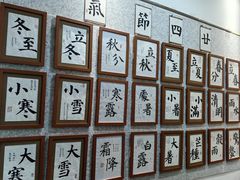 廿四節氣
春分
清明
穀雨
立夏
小滿
芒種
夏至
小暑
大暑
立秋
處暑
白露
秋分
寒露
霜降
立冬
小雪
大雪
冬至
小寒
大寒